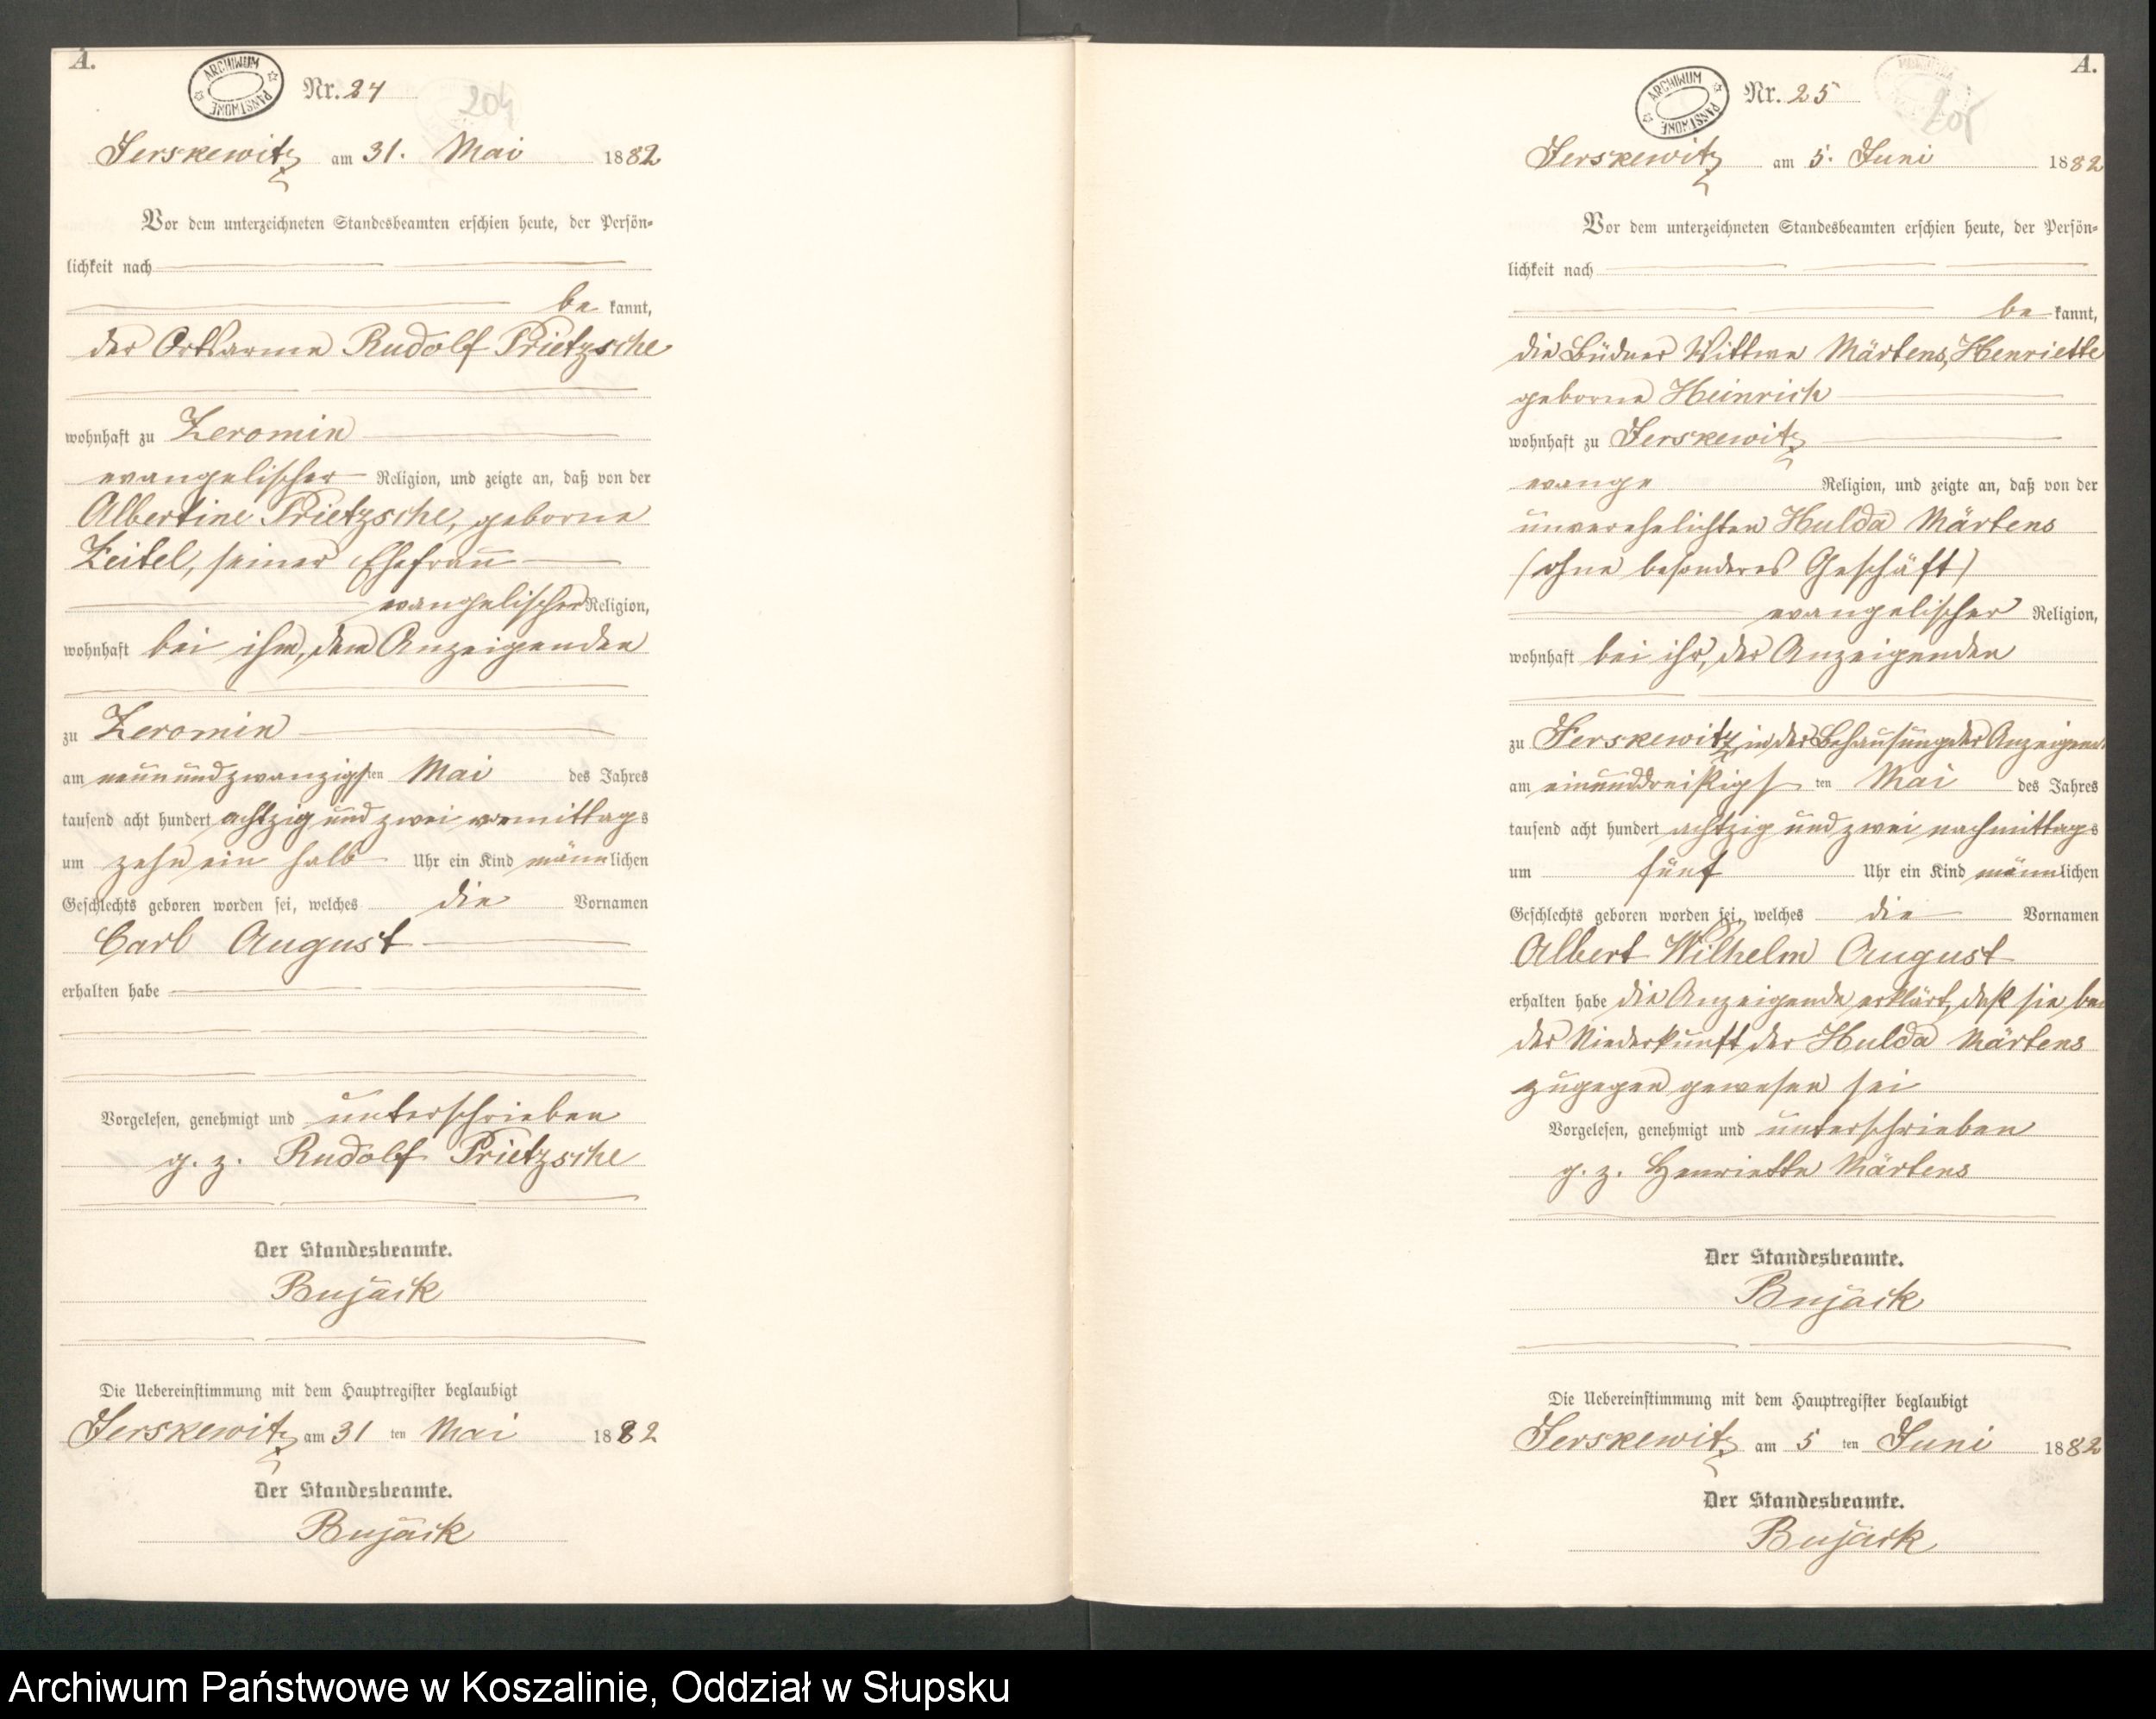 A.
ARCHIWUM PAŃSTWOWE
Nr. 24
204
Jerskewitz am 31. Mai 1882
Vor dem unterzeichneten Standesbeamten erschien heute, der Persön-
lichkeit nach
be kannt,
der Ortsarme Rudolf Prietzsche
wohnhaft zu Zeromin
evangelischer Religion, und zeigte an, daß von der
Albertine Prietzsche, geborne
Zeitel, seiner Ehefrau
evangelischer Religion,
wohnhaft bei ihm, dem Anzeigenden
zu Zeromin
am neunundzwanzigsten Mai des Jahres
tausend acht hundert achtzig und zwei vormittags
um zehn ein halb Uhr ein Kind männlichen
Geschlechts geboren worden sei, welches die Vornamen
Carl August
erhalten habe
Vorgelesen, genehmigt und unterschrieben
g. z. Rudolf Prietzsche
Der Standesbeamte.
Bujack
Die Uebereinstimmung mit dem Hauptregister beglaubigt
Jerskewitz am 31 ten Mai 1882
Der Standesbeamte.
Bujack
A.
ARCHIWUM PAŃSTWOWE
Nr. 25
205
Jerskewitz am 5. Juni 1882
Vor dem unterzeichneten Standesbeamten erschien heute, der Persön-
lichkeit nach
be kannt,
die Büdner Wittwe Märtens, Henriette
geborne Heinrich
wohnhaft zu Jerskewitz
evange Religion, und zeigte an, daß von der
unverehelichten Hulda Märtens
(ohne besonderes Geschäft)
evangelischer Religion,
wohnhaft bei ihr, der Anzeigenden
zu Jerskewitz, in der Behausung der Anzeigend
am einunddreißigst ten Mai des Jahres
tausend acht hundert achtzig und zwei nachmittags
um fünf Uhr ein Kind männlichen
Geschlechts geboren worden sei, welches die Vornamen
Albert Wilhelm August
erhalten habe die Anzeigende erklärt, daß sie bei
der Niederkunft der Hulda Märtens
zugegen gewesen sei
Vorgelesen, genehmigt und unterschrieben
g. z. Henriette Märtens
Der Standesbeamte.
Bujack
Die Uebereinstimmung mit dem Hauptregister beglaubigt
Jerskewitz am 5 ten Juni 1882
Der Standesbeamte.
Bujack
Archiwum Państwowe w Koszalinie, Oddział w Słupsku